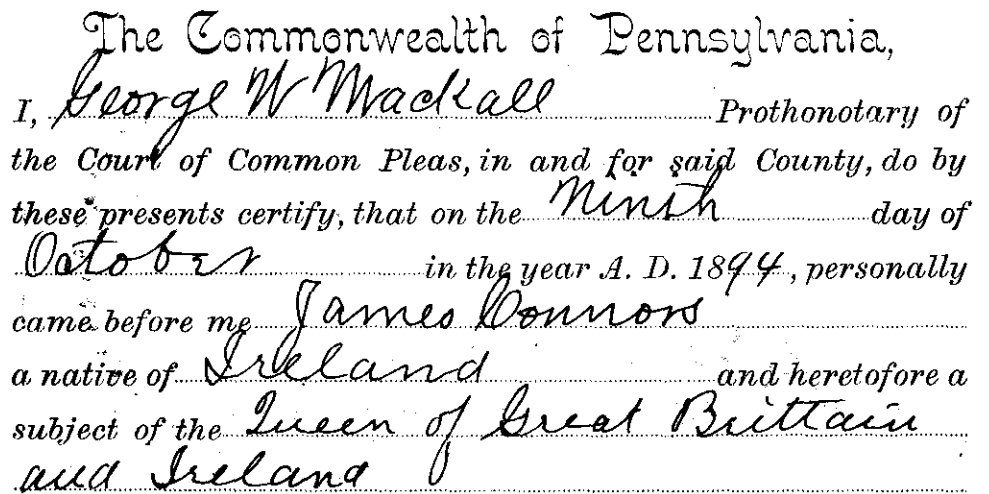 The Commonwealth of Pennsylvania,
I, George W Mackall Prothonotary of
the Court of Common Pleas, in and for said County, do by
these presents certify, that on the Ninth day of
October in the year A. D. 1894, personally
came before me James Connors
a native of Ireland and heretofore a
subject of the Queen of Great Brittain
and Ireland